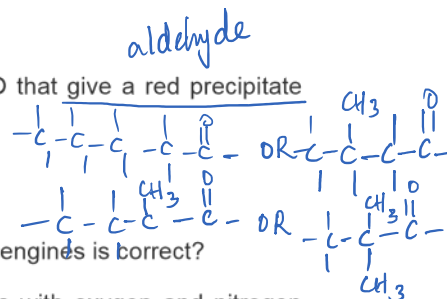 aldehyde
O that give a red precipitate
CH3
-C-C-C-C-C- OR -C-C-C-C-
O O
CH3 O CH3 O
-C-C-C-C- OR -C-C-C-
engines is correct?
CH3
with oxygen and nitrogen